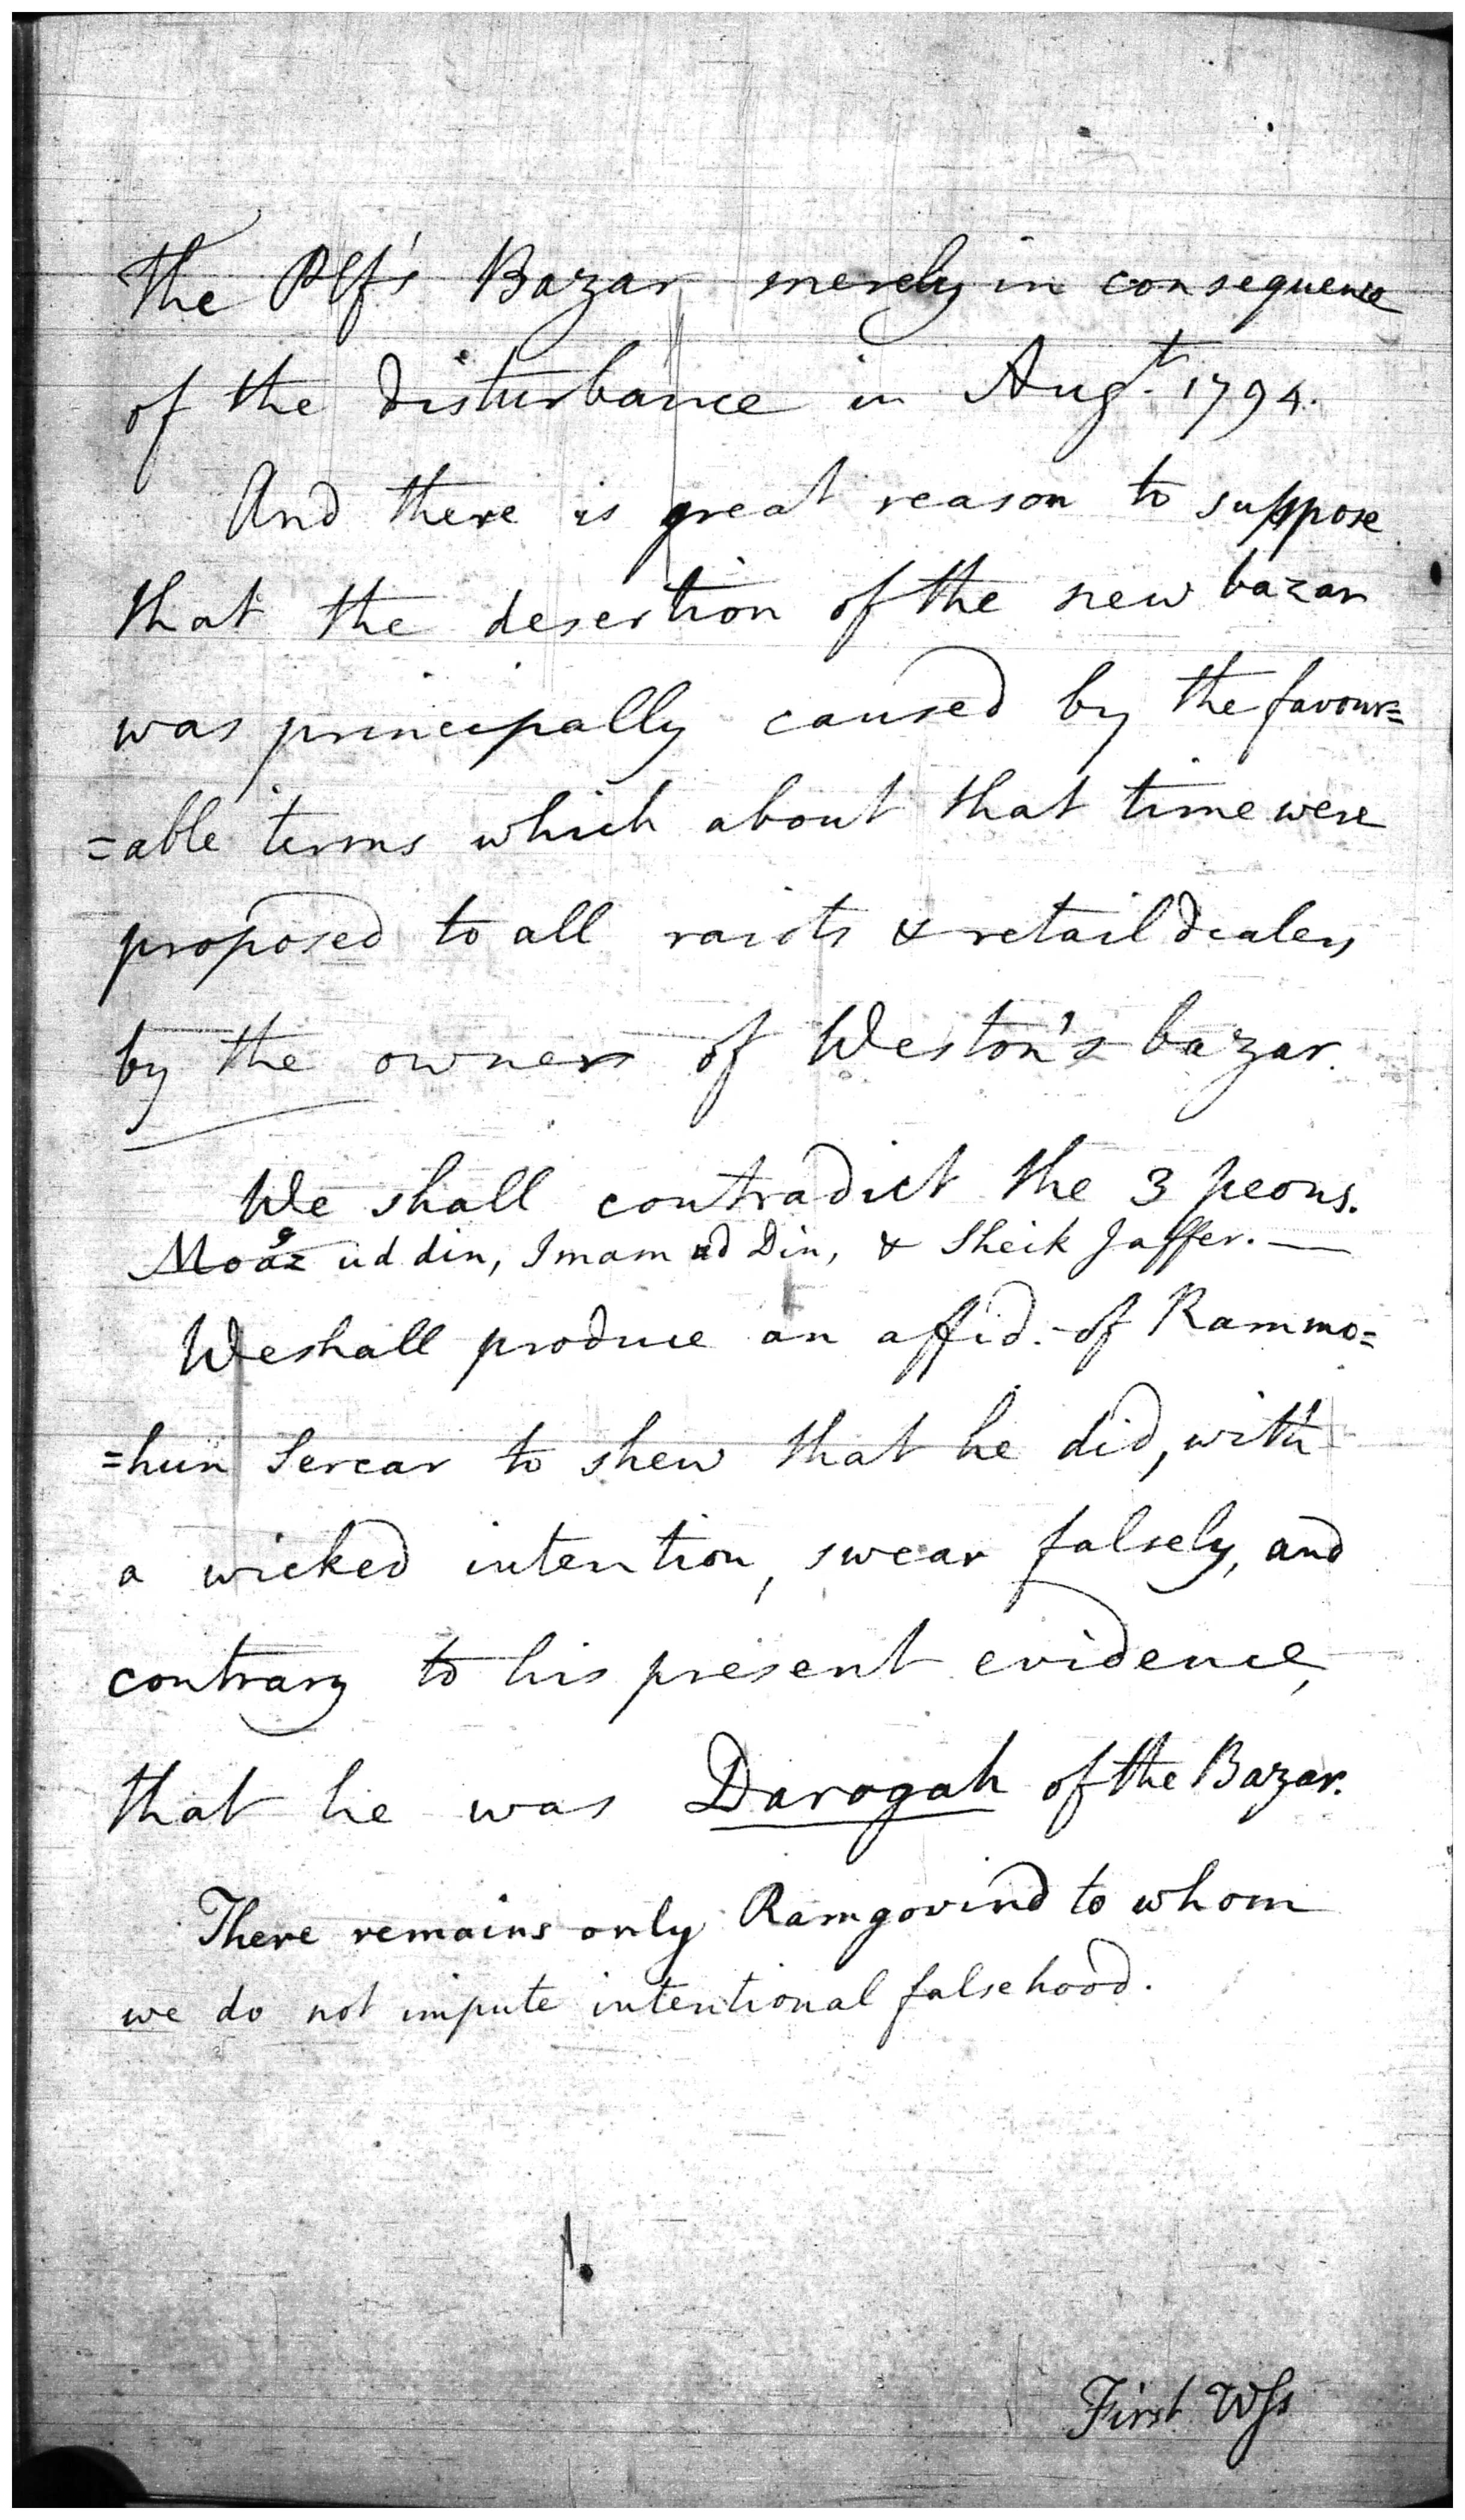 the Plf's Bazar merely in consequence
of the disturbance in Augt. 1794.
And there is great reason to suppose
that the desertion of the new bazar
was principally caused by the favour=
=able terms which about that time were
proposed to all raiots & retail dealers
by the owners of Weston's bazar.
We shall contradict the 3 peons.
Moaz ud din, Imam ud Din, & Sheik Jaffer. —
We shall produce an affid. of Rammo=
=hun Sercar to shew that he did, with
a wicked intention, swear falsely, and
contrary to his present evidence,
that he was Darogah of the Bazar.
There remains only Ramgovind to whom
we do not impute intentional falsehood.
First Wss